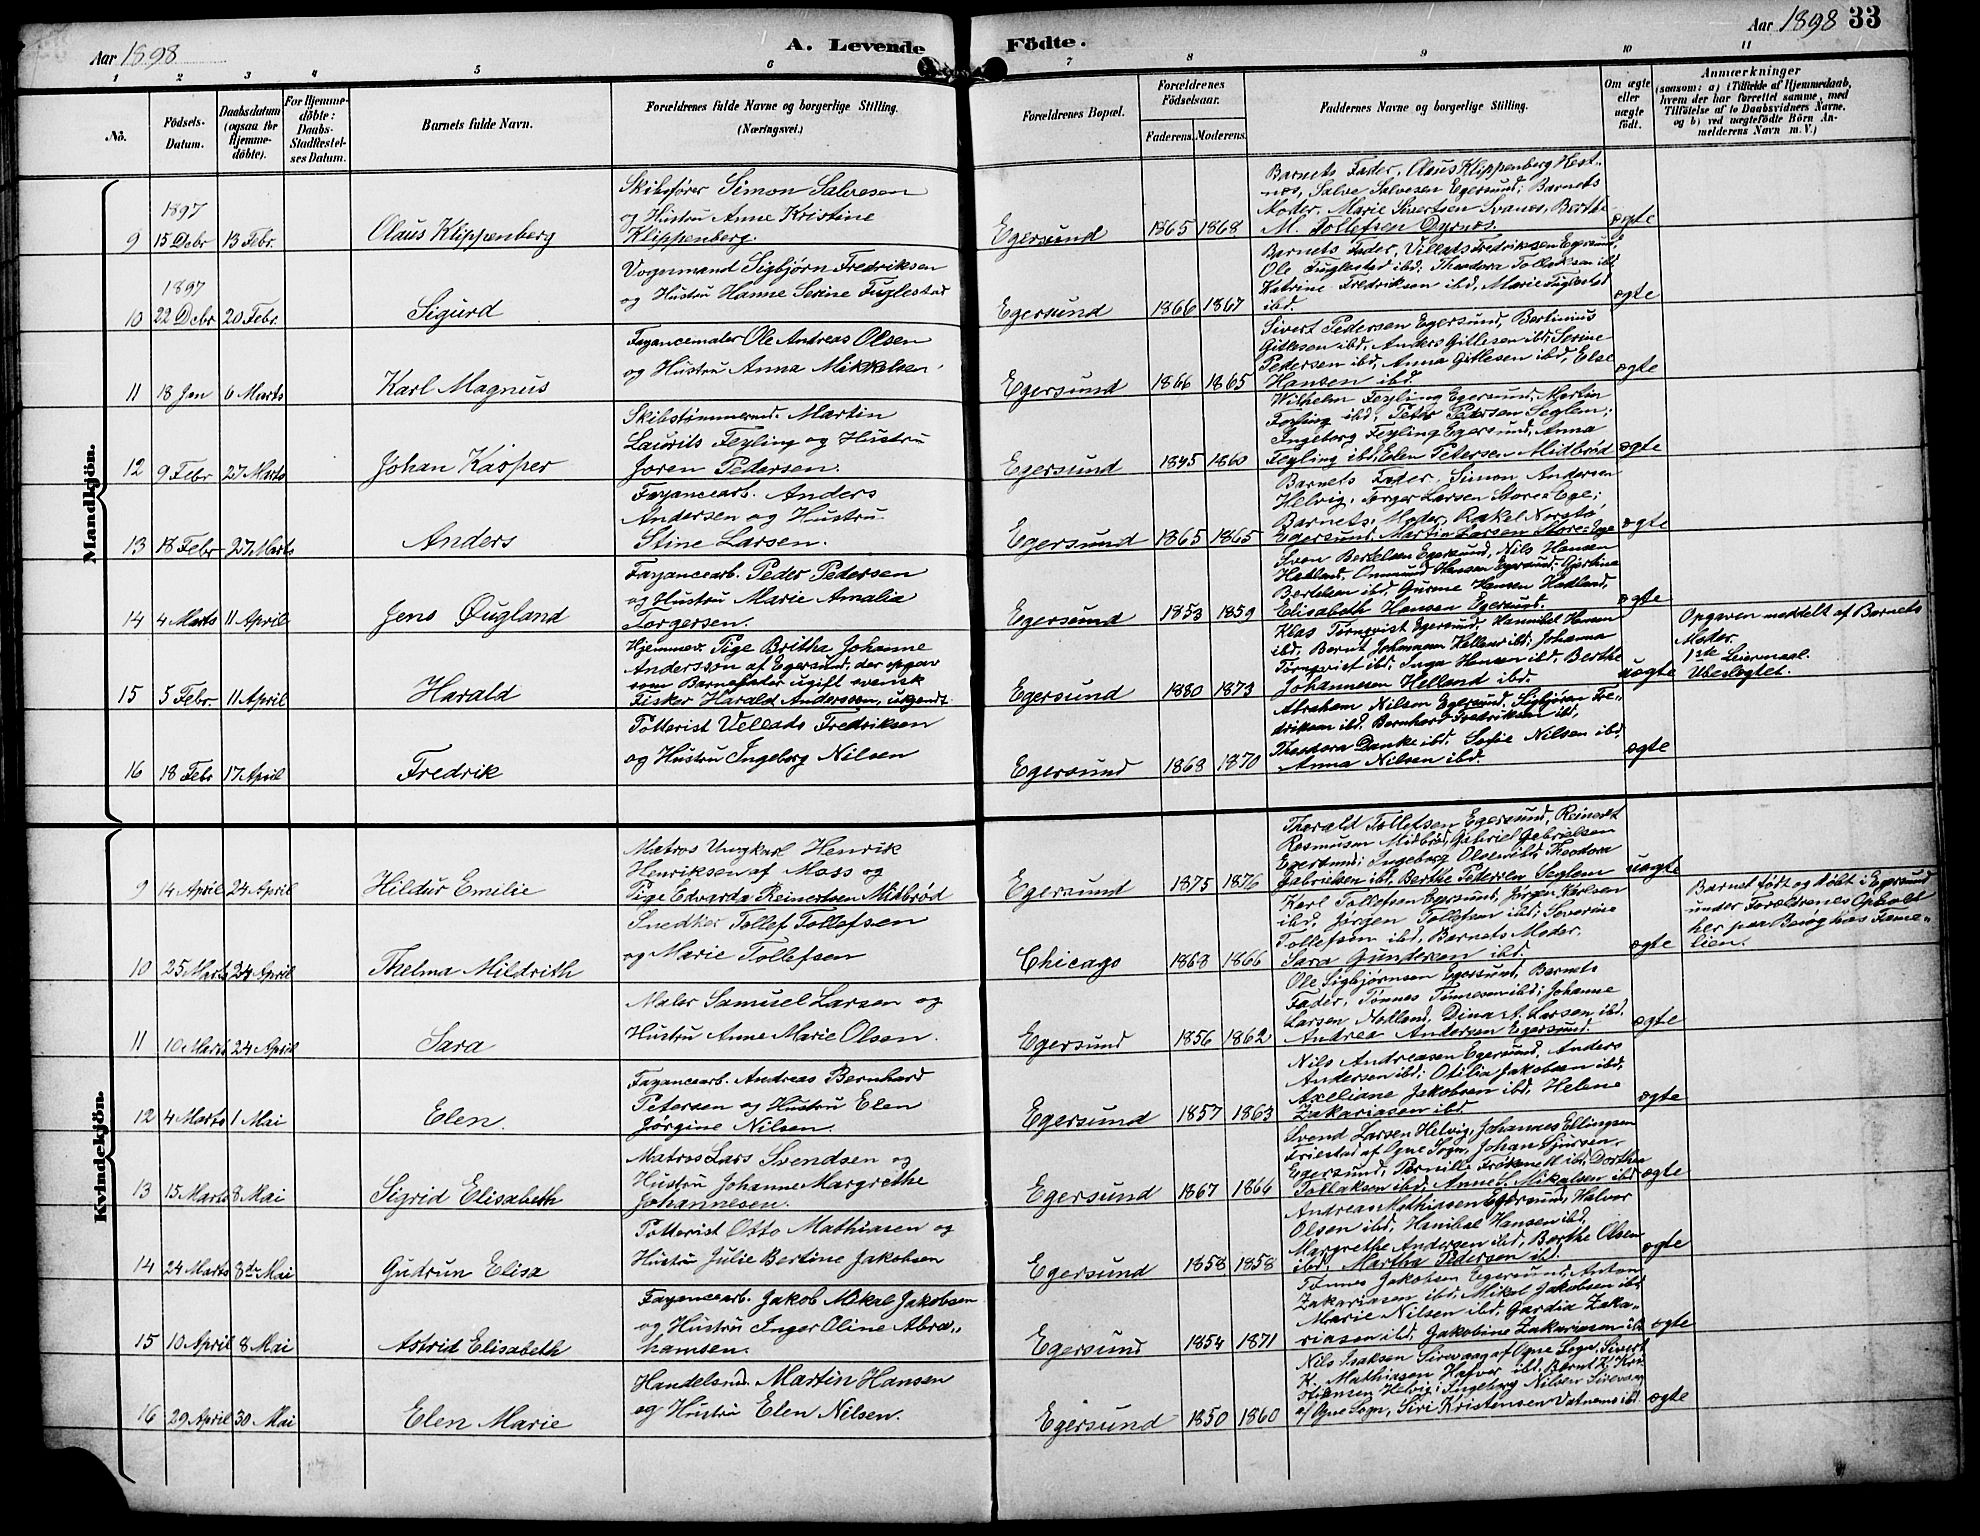 Aar 1898
A. Levende Födte.
Aar 1898 33
1 2 3 4 5 6 7 8 9 10 11
No.
Födsels-
Datum.
Daabsdatum
(ogsaa for
Hjemme-
döbte).
For Hjemme-
döbte:
Daabs-
Stadfæstel-
ses Datum.
Barnets fulde Navn.
Forældrenes fulde Navne og borgerlige Stilling.
(Næringsvei.)
Forældrenes Bopæl.
Forældrenes
Födselsaar.
Faderens. Moderens.
Faddernes Navne og borgerlige Stilling.
Om ægte
eller
uægte
födt.
Anmærkninger
(saasom: a) i Tilfælde af Hjemmedaab,
hvem der har forrettet samme, med
Tilföielse af to Daabsvidners Navne,
og b) ved uægtefödte Börn An-
melderens Navn m. V.)
Mandkjön.
9 1897 15 Debr 13 Febr. Olaus Klippenberg
Skibsfører Simon Salvesen
og Hustru Anne Kristine
Klippenberg.
Egersund 1865 1868
Barnets Fader, Olaus Klippenberg Hest-
nes, Salve Salvesen Egersund; Barnets
Moder, Marie Sivertsen Svanes, Berthe
M. Tollefsen Dyrnes.
ægte
10 1897 22 Debr 20 Febr. Sigurd
Vognmand Sigbjørn Fredriksen
og Hustru Hanne Serine Fuglestad
Egersund 1866 1867
Barnets Fader, Villads Fredriksen Egersund,
Ole Fuglestad ibd; Theodora Tollaksen ibd
Katrine Fredriksen ibd, Marie Fuglestad
ibd.
ægte
11 18 Jan 6 Marts Karl Magnus
Fayancemaler Ole Andreas Olsen
og Hustru Anna Mikkelsen
Egersund 1866 1865
Sivert Pedersen Egersund, Bertinius
Gitlesen ibd, Anders Gitlesen ibd; Serine
Pedersen ibd, Anna Gitlesen ibd, Else
Hansen ibd.
ægte
12 9 Febr 27 Marts Johan Kasper
Skibstømmermd. Martin
Laurits Feyling og Hustru
Joren Pedersen.
Egersund 1845 1860
Wilhelm Feyling Egersund, Martin
Feyling ibd, Peter Pedersen Seglem;
Ingeborg Feyling Egersund, Anna
Feyling ibd, Elen Petersen Midbrød
ægte
13 18 Febr 27 Marts Anders
Fayancearb. Anders
Andersen og Hustru
Stine Larsen.
Egersund 1865 1865
Barnets Fader, Simon Andersen
Helvig, Torger Larsen Store-Ege;
Barnets Moder, Rakel Norstø,
Egersund, Martin Larsen Store-Ege
ægte
14 4 Marts 11 April Jens Øugland
Fayancearb. Peder Pedersen
og Hustru Marie Amalia
Torgersen.
Egersund 1853 1859
Sven Bertelsen Egersund, Nils Hansen
Hadland, Onmund Hansen Egersund; Gjertine
Bertelsen ibd, Gurine Hansen Hadland,
Elisabeth Hansen Egersund.
ægte
15 5 Febr. 11 April Harald
Hjemmev. Pige Britha Johanne
Andersson af Egersund, der opgav
som Barnefader ugift svensk
Fisker Harald Anderssen, ukjendt.
Egersund 1880 1873
Klas Tørnqvist Egersund, Hannibal Hansen
ibd, Bernt Johannesen Helland ibd; Johanna
Tørnqvist ibd, Inga Hansen ibd, Berthe
Johannesen Helland ibd.
uægte
Opgaven meddelt af Barnets
Moder.
1ste Leiermaal.
Ubeslægtet.
16 18 Febr 17 April Fredrik
Potterist Vellads Fredriksen
og Hustru Ingeborg Nilsen
Egersund 1868 1870
Abraham Nilsen Egersund, Sigbjørn Fre-
driksen ibd, Bernhard Fredriksen ibd;
Theodora Danke ibd, Sofie Nilsen ibd,
Anna Nilsen ibd.
ægte
Kvindekjön.
9 14 April 24 April Hildur Emelie
Matros Ungkarl Henrik
Henriksen af Moss og
Pige Edvarda Reinertsen Midbrød
Egersund 1875 1876
Thorald Tollefsen Egersund, Reinert
Rasmusen Midbrød, Gabriel Gabrielsen
Egersund; Ingeborg Olsen ibd, Theodora
Gabrielsen ibd, Berthe Pedersen Seglem
uægte
10 25 Marts 24 April Thelma Mildrith
Snedker Tollef Tollefsen
og Marie Tollefsen
Chicago 1868 1866
Karl Tollefsen Egersund, Jørgen Karlsen
ibd, Jørgen Tollefsen ibd; Severine
Tollefsen ibd, Barnets Moder,
Sara Gundersen ibd.
ægte
Barnet født og døbt i Egersund
under Forældrenes Ophold
her paa Besøg hos Fami-
lien.
11 10 Marts 24 April Sara
Maler Samuel Larsen og
Hustru Anne Marie Olsen.
Egersund 1856 1862
Ole Sigbjørnsen Egersund, Barnets
Fader, Tønnes Tønnesen ibd; Johanne
Larsen Hadland, Dina A. Larsen ibd,
Andrea Andersen Egersund.
ægte
12 4 Marts 1 Mai Elen.
Fayancearb. Andreas Bernhard
Petersen og Hustru Elen
Jørgine Nilsen.
Egersund 1857 1863
Nils Andreasen Egersund, Anders
Andersen ibd; Otilia Jakobsen ibd,
Axeliane Jakobsen ibd, Helene
Zakariasen ibd
ægte
13 15 Marts 8 Mai Sigrid Elisabeth
Matros Lars Svendsen og
Hustru Johanne Margrethe
Johannesen.
Egersund 1867 1866
Svend Larsen Helvig, Johannes Ellingsen
Friestad af Ogne Sogn, Johan Sjursen
Egersund, Pernille Frøknett ibd, Dorthea
Tollaksen ibd, Anne S. Mikalsen ibd
ægte
14 24 Marts 8de Mai Gudrun Elisa
Potterist Otto Mathiasen og
Hustru Julie Bertine Jakobsen
Egersund 1858 1858
Andreas Mathiasen Egersund, Halvor
Olsen ibd, Hanibal Hansen ibd,
Margrethe Andersen ibd, Berthe Olsen
ibd, Martha Pedersen ibd.
ægte
15 10 April 8 Mai Astrid Elisabeth
Fayancearb. Jakob Mikal Jakobsen
og Hustru Inger Oline Abra-
hamsen.
Egersund 1854 1871
Tønnes Jakobsen Egersund, Anton
Zakariasen ibd, Mikal Jakobsen ibd
Marie Nilsen ibd, Gardia Zaka-
riasen ibd, Jakobine Zakariasen ibd
ægte
16 29 April 30 Mai Elen Marie
Handelsmd. Martin Hansen
og Hustru Elen Nilsen.
Egersund 1850 1860
Nils Isaksen Sirevaag af Ogne Sogn, Sivert
K. Mathiasen Hafver ibd, Bernt K. Kri-
stiansen Helvig; Ingeborg Nilsen Sirevaag
af Ogne Sogn, Siri Kristensen Vatnemo ibd.
ægte